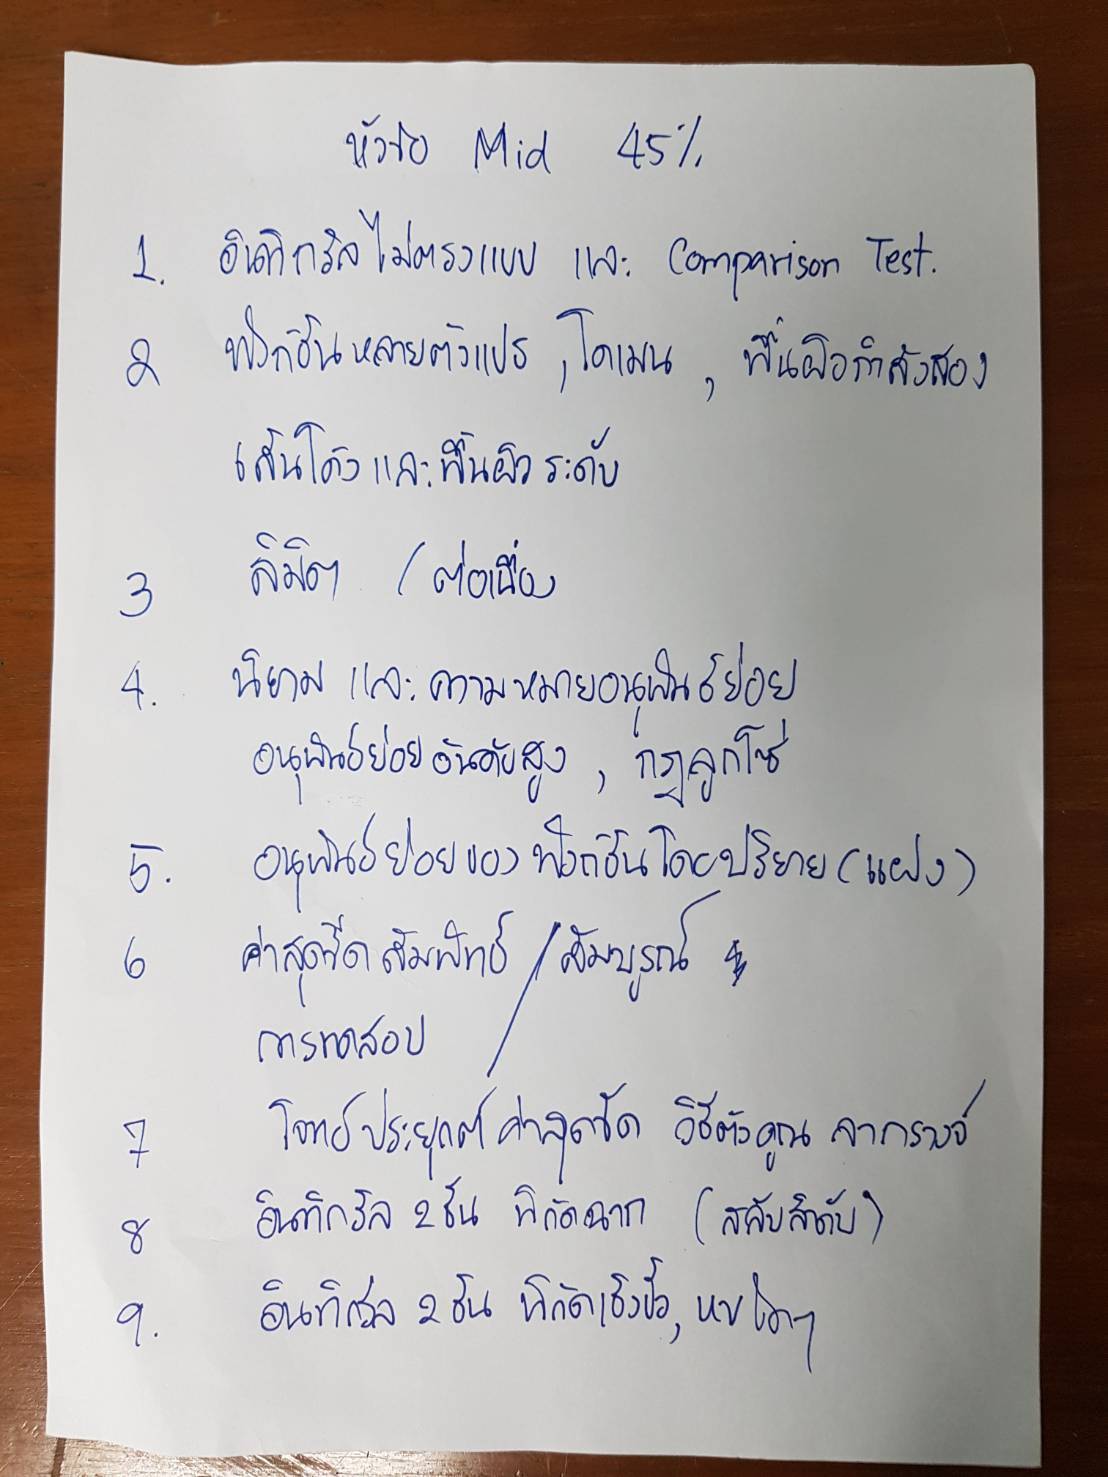 หัวข้อ Mid 45%
1. อินทิกรัลไม่ตรงแบบ และ Comparison Test.
2 ฟังก์ชันหลายตัวแปร, โดเมน, พื้นผิวกำลังสอง
เส้นโค้งและพื้นผิวระดับ
3 ลิมิต / ต่อเนื่อง
4. นิยาม และความหมายอนุพันธ์ย่อย
อนุพันธ์ย่อยอันดับสูง, กฎลูกโซ่
5. อนุพันธ์ย่อยของฟังก์ชันโดยปริยาย (แฝง)
6 ค่าสุดขีดสัมพัทธ์ / สัมบูรณ์
การทดสอบ
7 โจทย์ประยุกต์ค่าสุดขีด วิธีตัวคูณลากรางจ์
8 อินทิกรัล 2 ชั้น พิกัดฉาก (สลับลำดับ)
9. อินทิกรัล 2 ชั้น พิกัดเชิงขั้ว,